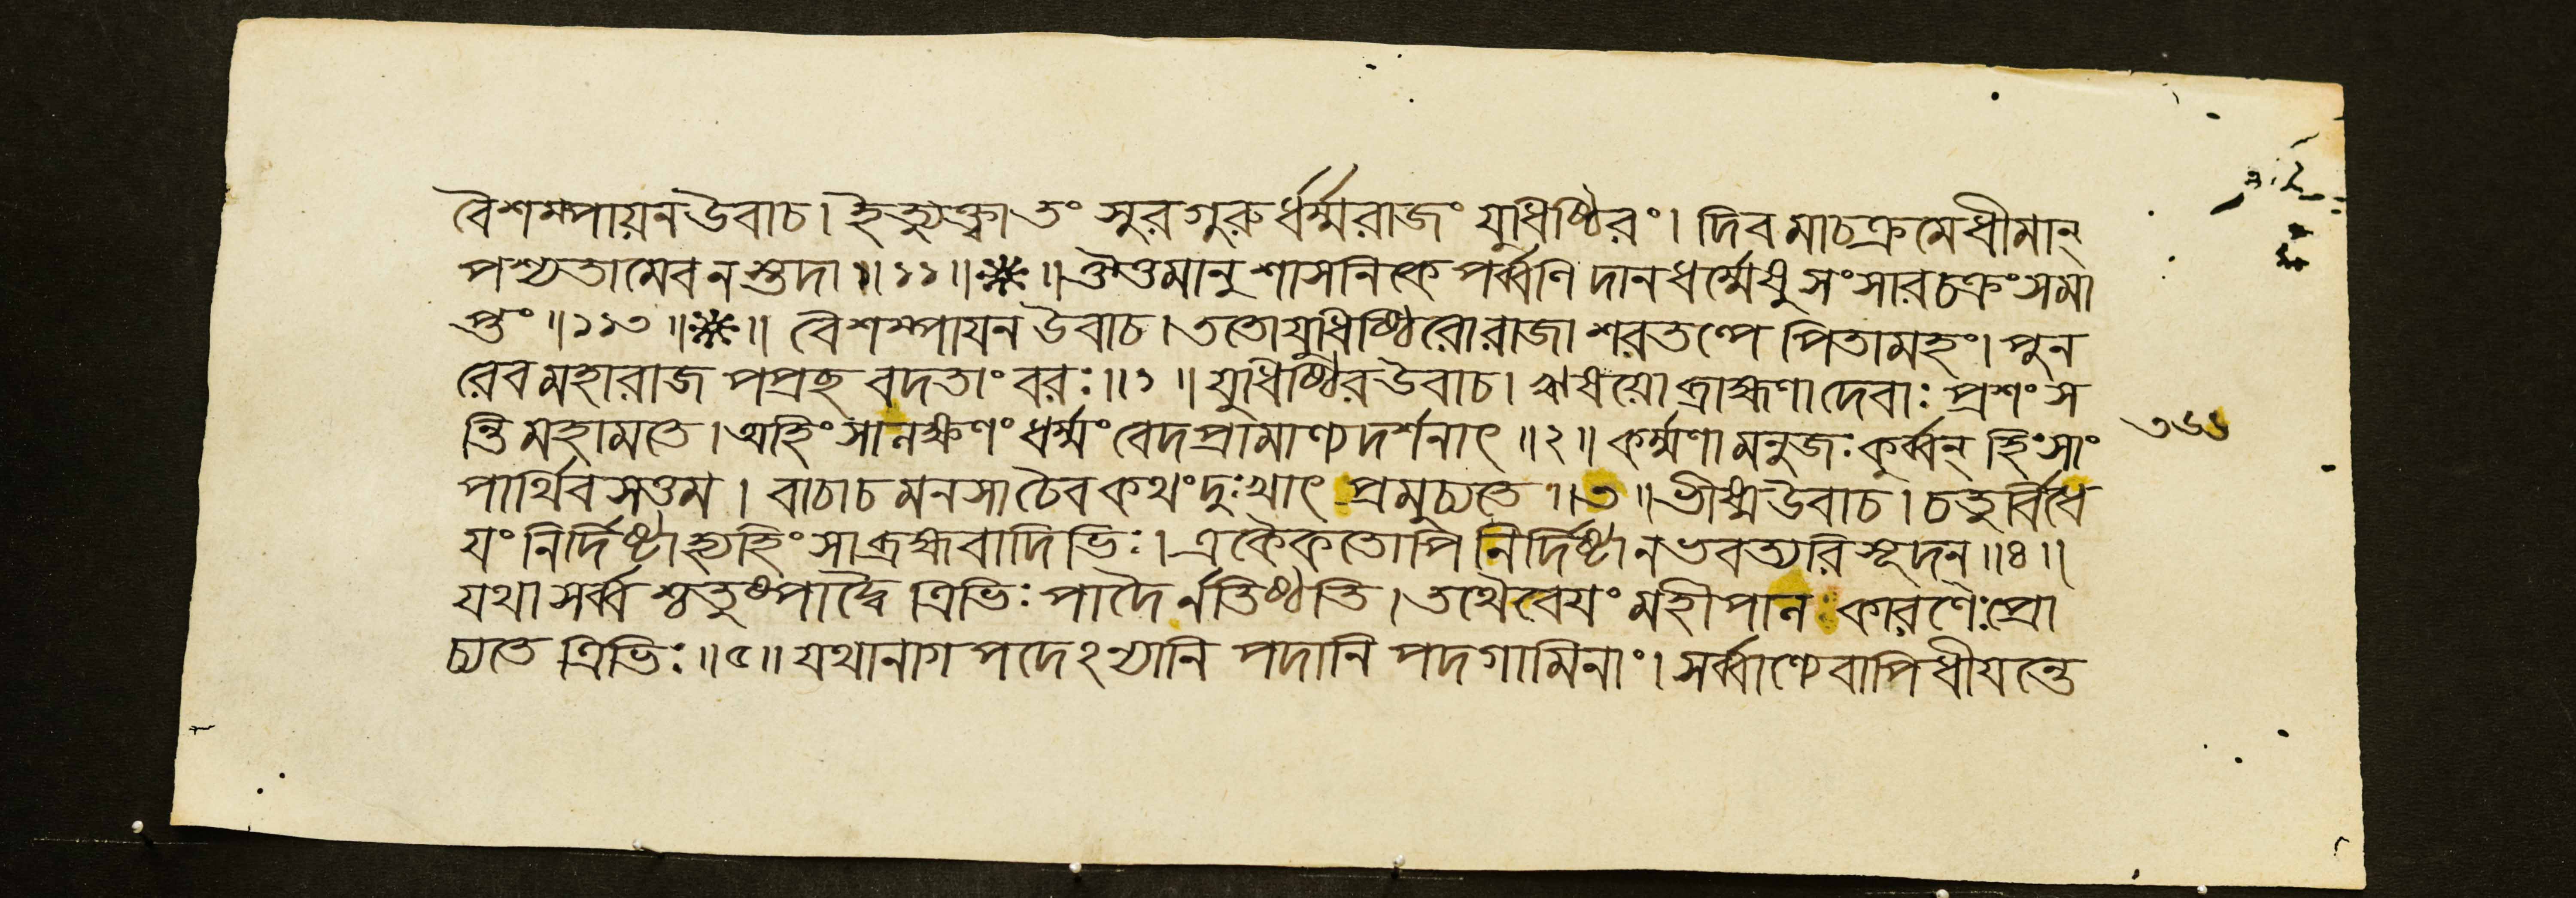 বৈশম্পায়ন উবাচ। ইত্যুক্ত্বা তং সুরগুরুর্ধর্ম্মরাজং যুধিষ্ঠিরং। দিবমাচক্রমে ধীমান্
পশ্যতামেব নস্তদা॥১১॥❋॥ ঔত্তমানুশাসনিকে পর্ব্বণি দানধর্ম্মেষু সংসারচক্রং সমা
প্তং॥১১৩॥❋॥ বৈশম্পায়ন উবাচ। ততো যুধিষ্ঠিরো রাজা শরতল্পে পিতামহং। পুন
রেব মহারাজ পপ্রছ বদতাং বরঃ॥১॥ যুধিষ্ঠির উবাচ। ঋষয়ো ব্রাহ্মণা দেবাঃ প্রশংস
ন্তি মহামতে। অহিংসানক্ষণং ধর্ম্মং বেদপ্রামাণ্যদর্শনাৎ॥২॥ কর্ম্মণা মনুজঃ কুর্ব্বন্ হিংসাং
৩৬৬
পার্থিবসত্তম। বাচা চ মনসা চৈব কথং দুঃখাৎ প্রমুচ্যতে॥৩॥ ভীষ্ম উবাচ। চতুর্বিধে
যং নির্দিষ্টা হ্যহিংসা ব্রহ্মবাদিভিঃ। একৈকতোপি নির্দিষ্টা ন ভবত্যরিসূদন॥৪॥
যথা সর্ব্বশ্চতুষ্পাদ্বৈ ত্রিভিঃ পাদৈর্ন তিষ্ঠতি। তথৈবেয়ং মহীপান কারণৈঃ প্রো
চ্যতে ত্রিভিঃ॥৫॥ যথা নাগপদেঽন্যানি পদানি পদগামিনাং। সর্ব্বাণ্যেবাপিধীয়ন্তে